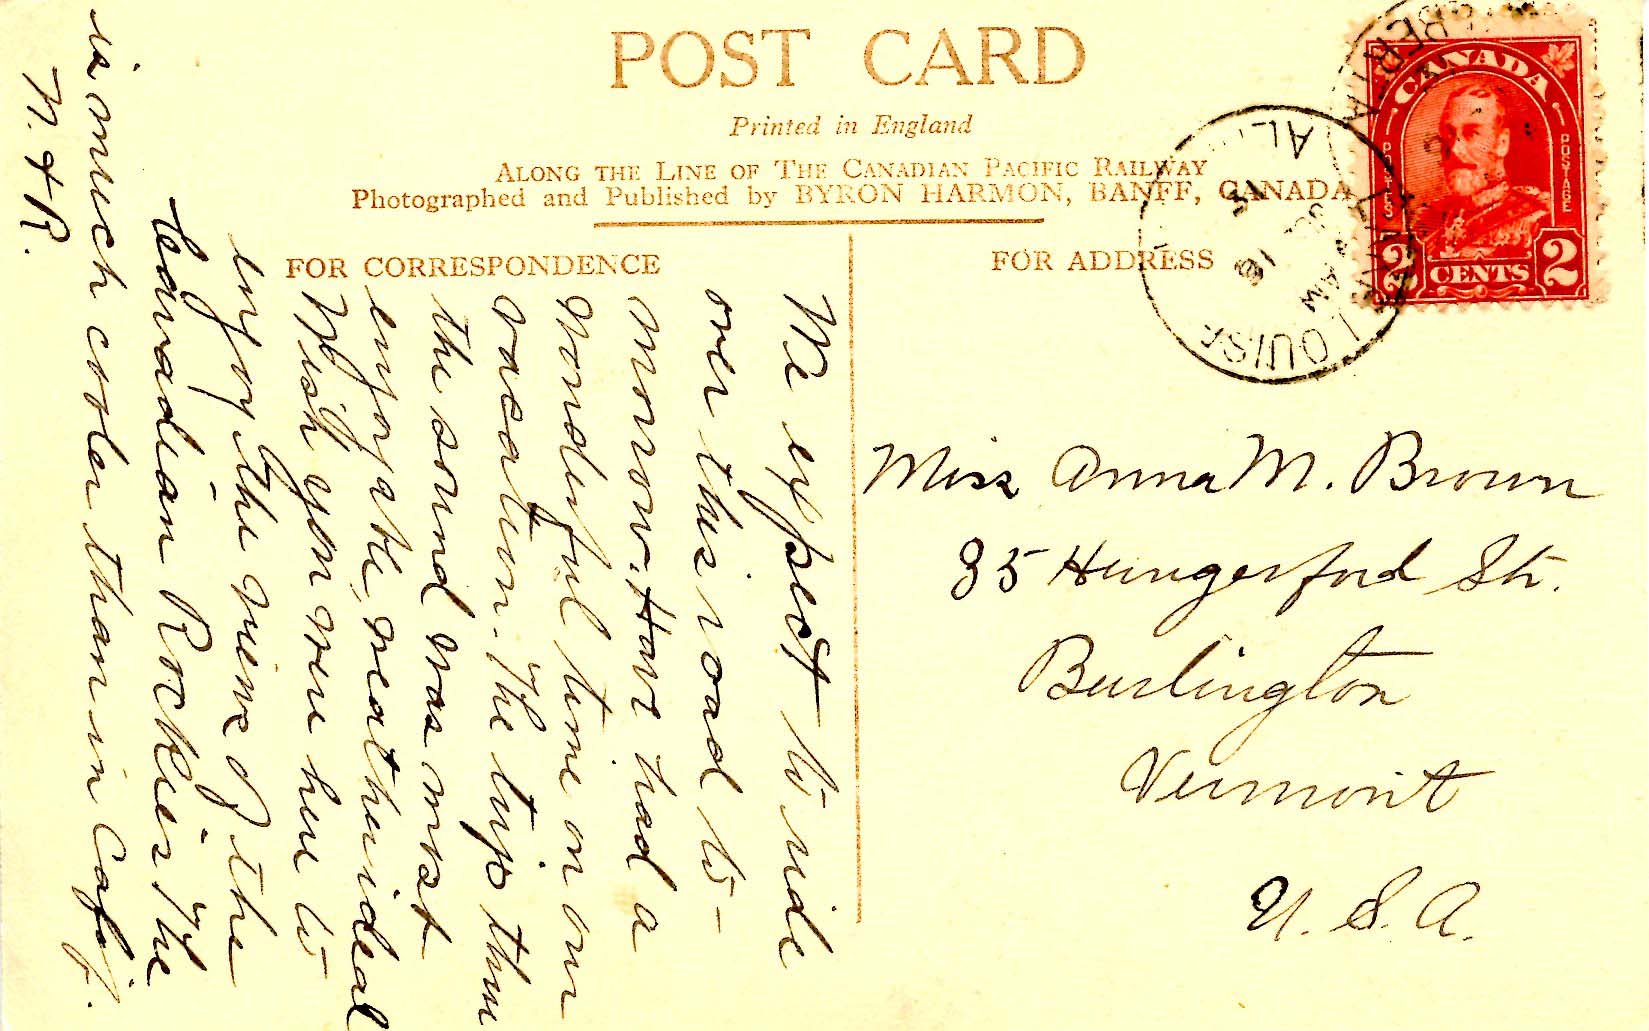 POST CARD
Printed in England
ALONG THE LINE OF THE CANADIAN PACIFIC RAILWAY
Photographed and Published by BYRON HARMON, BANFF, CANADA
FOR CORRESPONDENCE
FOR ADDRESS
We expect to ride
over this road to-
morrow. Have had a
wonderful time on our
vacation. The trip thru
the sound was most
enjoyable, weather ideal
Wish you were here to
enjoy the views of the
Canadian Rockies. The
is much cooler than in Calif.
M. & R.
Miss Anna M. Brown
35 Hungerford St.
Burlington
Vermont
U. S. A.
CANADA
POSTES
POSTAGE
2 CENTS 2
LOUISE